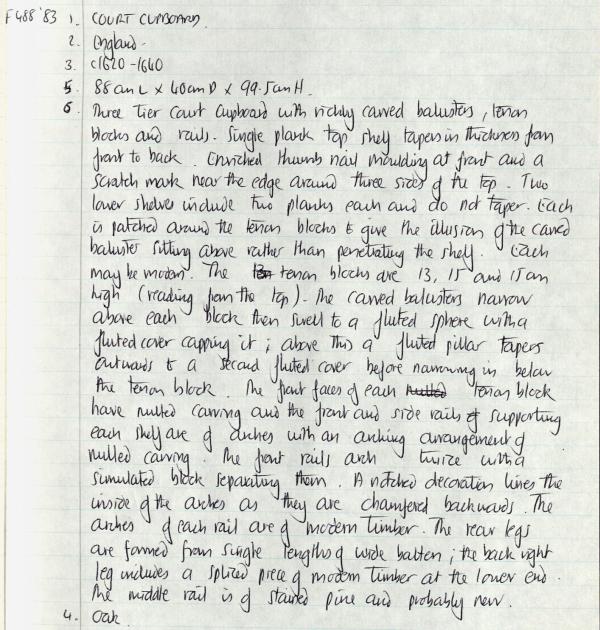 F488 '83 1. COURT CUPBOARD.
2. England.
3. c1620-1640
5. 88cm L x 40cm D x 99.5cm H.
6. Three Tier Court Cupboard with richly carved balusters, tenon
blocks and rails. Single plank top shelf tapers in thickness from
front to back. Enriched thumb nail moulding at front and a
scratch mark near the edge around three sides of the top. Two
lower shelves include two planks each and do not taper. Each
is patched around the tenon blocks to give the illusion of the carved
baluster sitting above rather than penetrating the shelf. Each
may be modern. The tenon blocks are 13, 15 and 15cm
high (reading from the top). The carved balusters narrow
above each block then swell to a fluted sphere with a
fluted cover capping it; above this a fluted pillar tapers
outwards to a second fluted cover before narrowing in below
the tenon block. The front faces of each nulled tenon block
have nulled carving and the front and side rails of supporting
each shelf are of arches with an arching arrangement of
nulled carving. The front rails arch twice with a
simulated block separating them. A notched decoration lines the
inside of the arches as they are chamfered backwards. The
arches of each rail are of modern timber. The rear legs
are formed from single lengths of wide batten; the back right
leg includes a spliced piece of modern timber at the lower end.
The middle rail is of stained pine and probably new.
4. Oak.